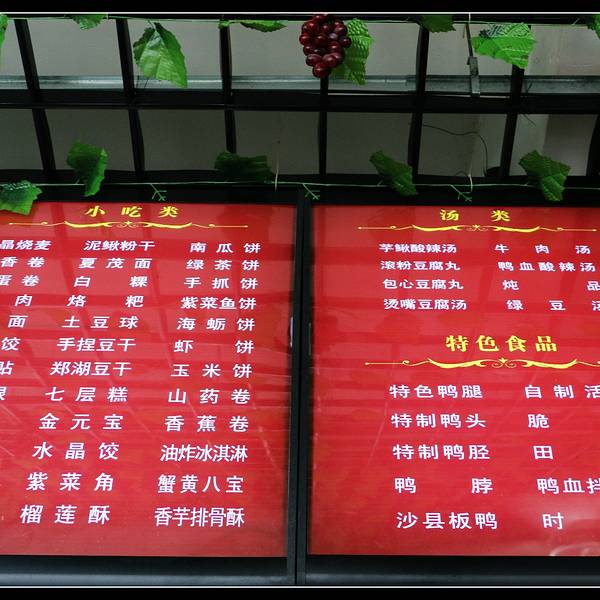 小吃类
晶烧麦 泥鳅粉干 南瓜饼
香卷 夏茂面 绿茶饼
蛋卷 白粿 手抓饼
肉 烙粑 紫菜鱼饼
面 土豆球 海蛎饼
饺 手捏豆干 虾饼
贴 郑湖豆干 玉米饼
七层糕 山药卷
金元宝 香蕉卷
水晶饺 油炸冰淇淋
紫菜角 蟹黄八宝
榴莲酥 香芋排骨酥
汤类
芋鳅酸辣汤 牛肉汤
滚粉豆腐丸 鸭血酸辣汤
包心豆腐丸 炖品
烫嘴豆腐汤 绿豆汤
特色食品
特色鸭腿 自制活
特制鸭头 脆
特制鸭胫 田
鸭脖 鸭血拌
沙县板鸭 时